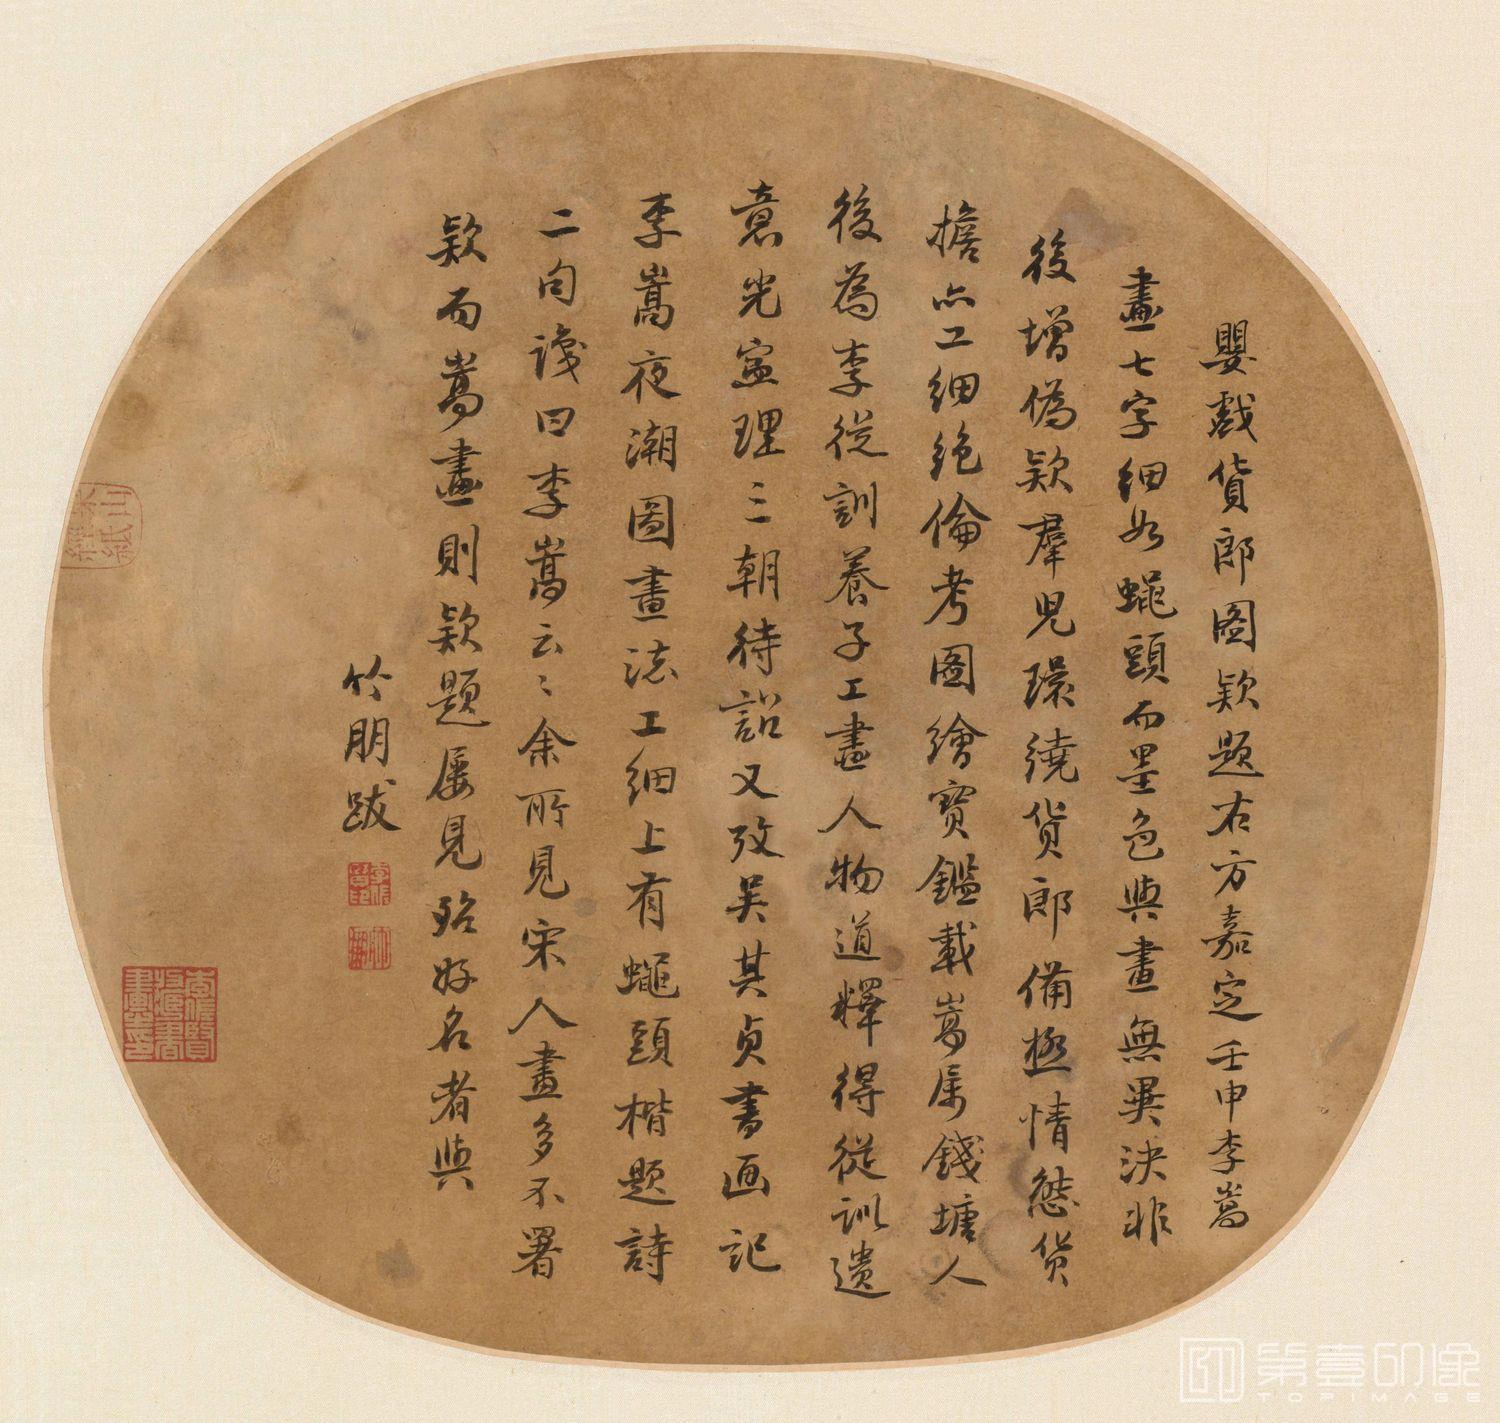 嬰戲貨郎圖款題右方嘉定壬申李嵩
畫七字細如蠅頭而墨色與畫無異決非
後增偽款羣兒環繞貨郎備極情態貨
擔亦工細絶倫考圖繪寶鑑載嵩屬錢塘人
後為李從訓養子工畫人物道釋得從訓遺
意光寧理三朝待詔又攷吳其貞書画記
李嵩夜潮圖畫法工細上有蠅頭楷題詩
二句識曰李嵩云〻余所見宋人畫多不署
款而嵩畫則款題屢見殆好名者與
竹朋跋
李佐賢收藏書畫之印
第壹印像
TOPIMAGE